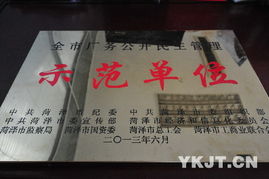 全市厂务公开民主管理
示范单位
中共菏泽市纪委 中共菏泽市委组织部
中共菏泽市委宣传部 菏泽市经济和信息化委员会
菏泽市监察局 菏泽市国资委 菏泽市总工会 菏泽市工商业联合会
二〇一三年六月
YKJT.CN